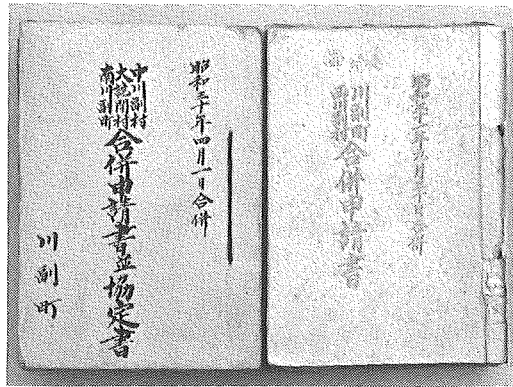 昭和三十年四月一日合併
中川副村
大詫間村
南川副町
合併申請書並協定書
川副町
昭和三十一年九月三十日合併
川副町
西川副村
合併申請書